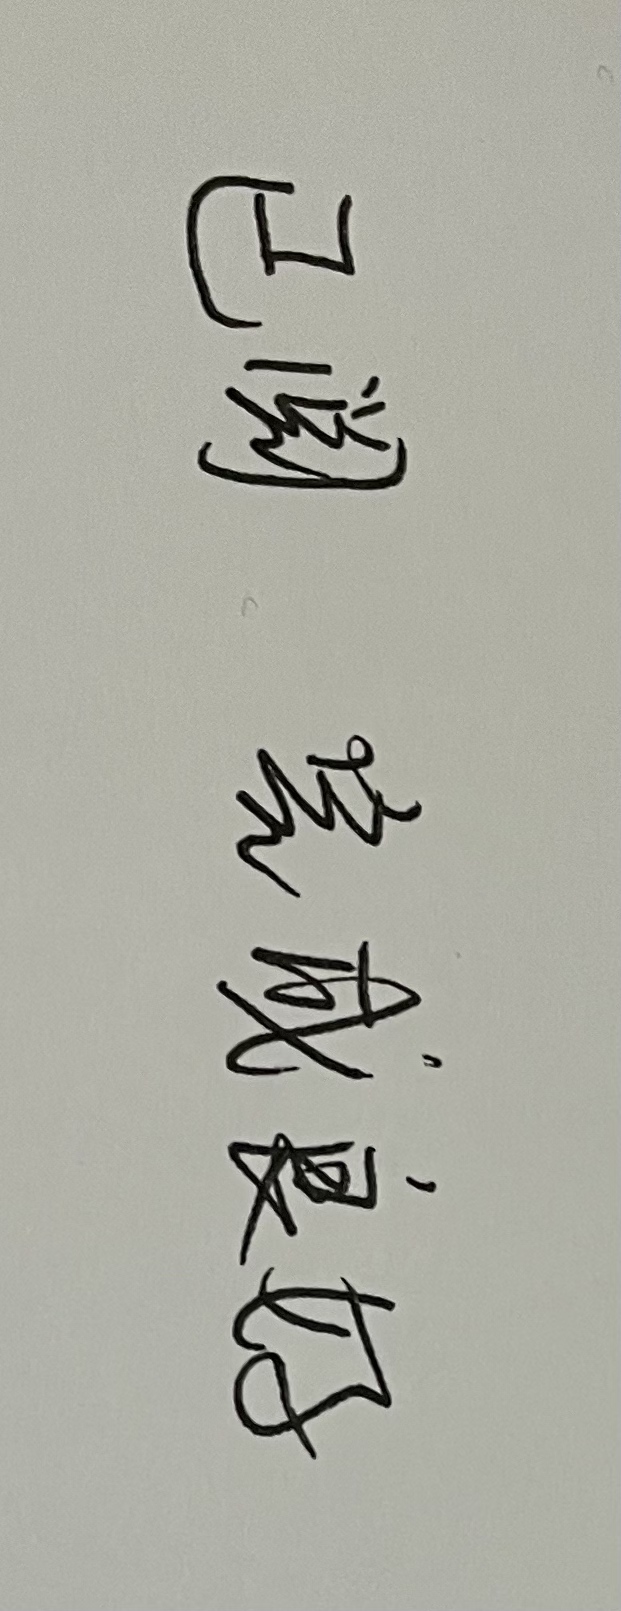 已阅 完成良好